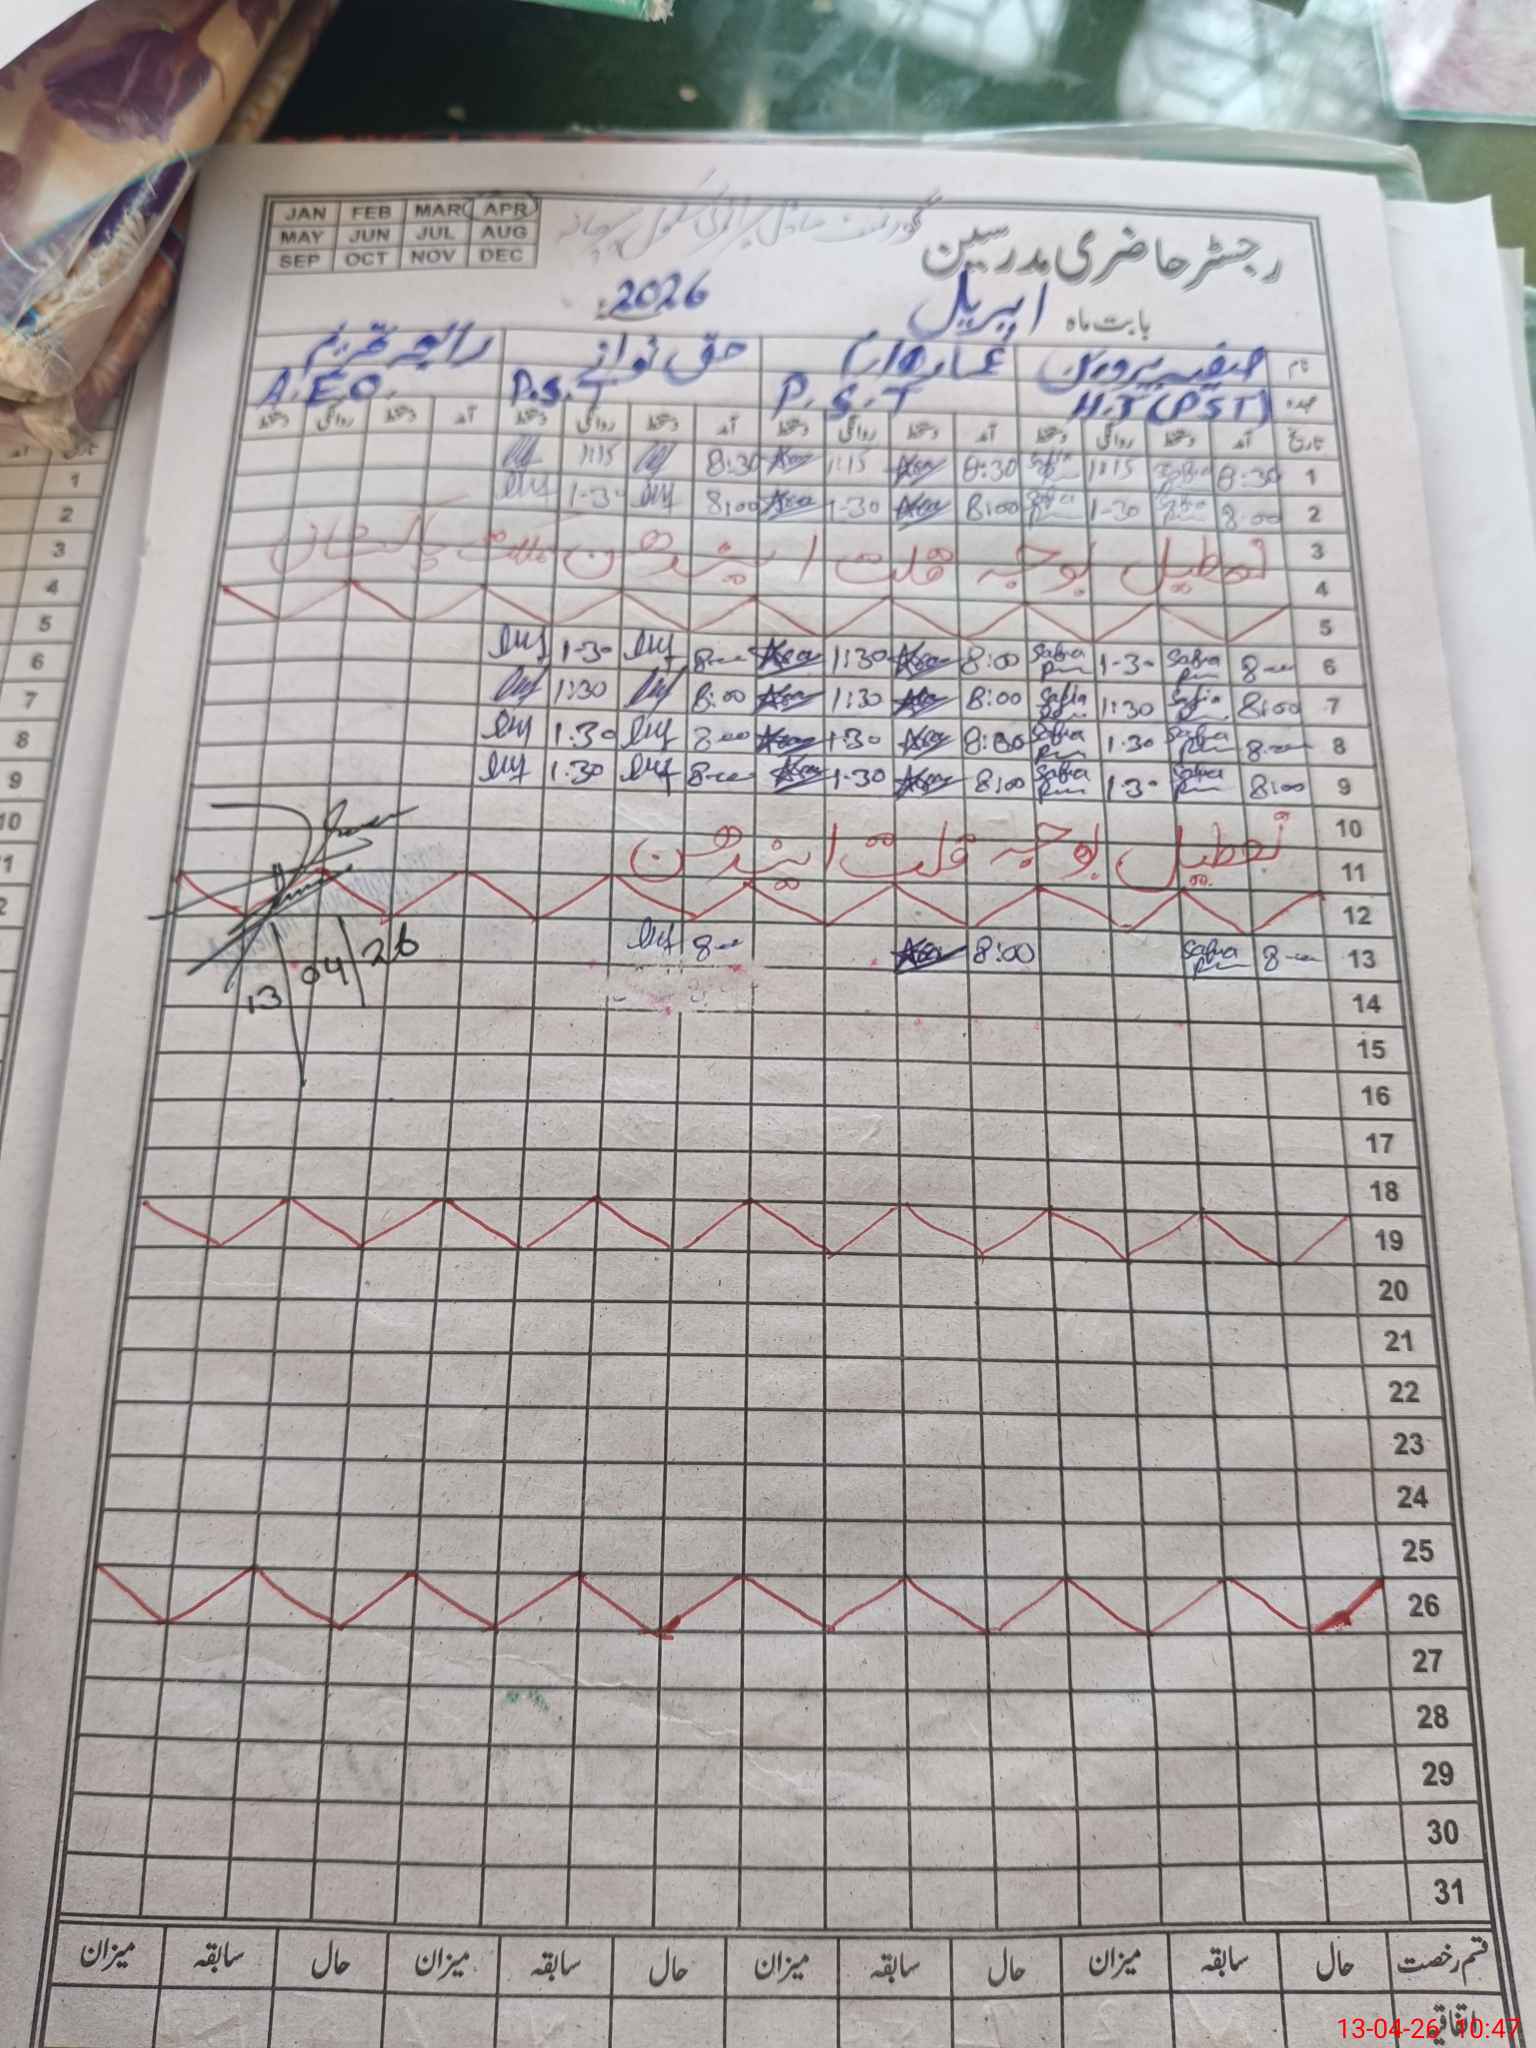 JAN FEB MAR APR
MAY JUN JUL AUG
SEP OCT NOV DEC
گورنمنٹ ماڈل پرائمری سکول
رجسٹر حاضری مدرسین
بابت ماہ اپریل 2026
نام صفیہ پروین حق نواز
عہدہ H.T (PST) P.S.T P.S.T A.E.O.
تاریخ آمد دستخط روانگی دستخط آمد دستخط روانگی دستخط آمد دستخط روانگی دستخط آمد دستخط روانگی دستخط
1 8:30 Safia 1:15 Safia 8:30 1:15 8:30 1:15
2 8:00 Safia 1-30 Safia 8:00 1-30 8:00 1-30
3 تعطیل بوجہ قلت ایندھن
4
5
6 8-00 Safia 1-30 Safia 8:00 1:30 8-00 1-30
7 8:00 Safia 1:30 Safia 8:00 1:30 8:00 1:30
8 8-00 Safia 1.30 Safia 8:00 1-30 8-00 1.30
9 8:00 Safia 1-30 Safia 8:00 1-30 8-00 1.30
10 تعطیل بوجہ قلت ایندھن
11
12
13 8-00 Safia 8:00 8-00
13/04/26
14
15
16
17
18
19
20
21
22
23
24
25
26
27
28
29
30
31
قسم رخصت حال سابقہ میزان حال سابقہ میزان حال سابقہ میزان حال سابقہ میزان
اتفاقیہ
13-04-26 10:47
1
2
3
4
5
6
7
8
9
10